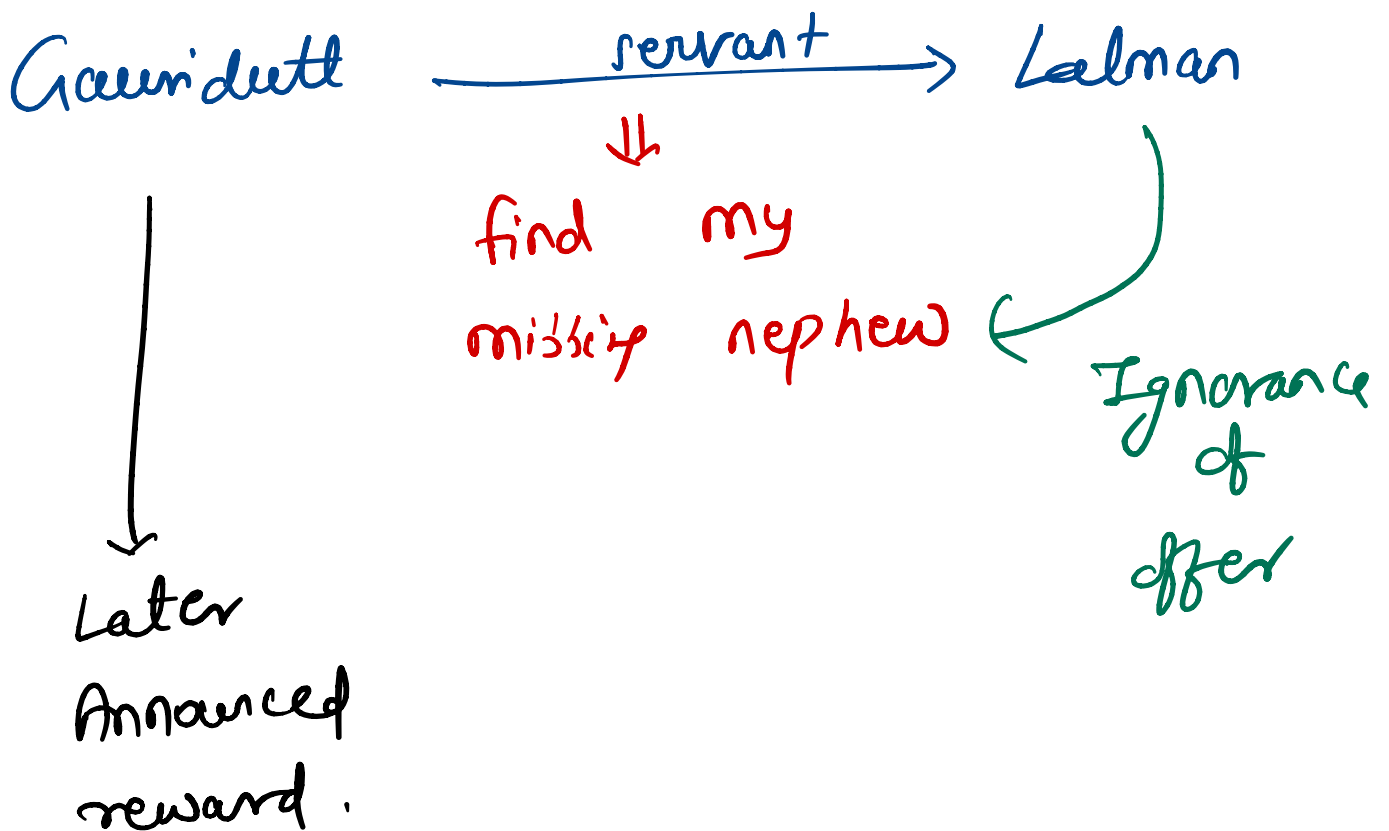 Gauridutt servant Lalman
find my
missing nephew
Ignorance
of
offer
Later
Announced
reward.